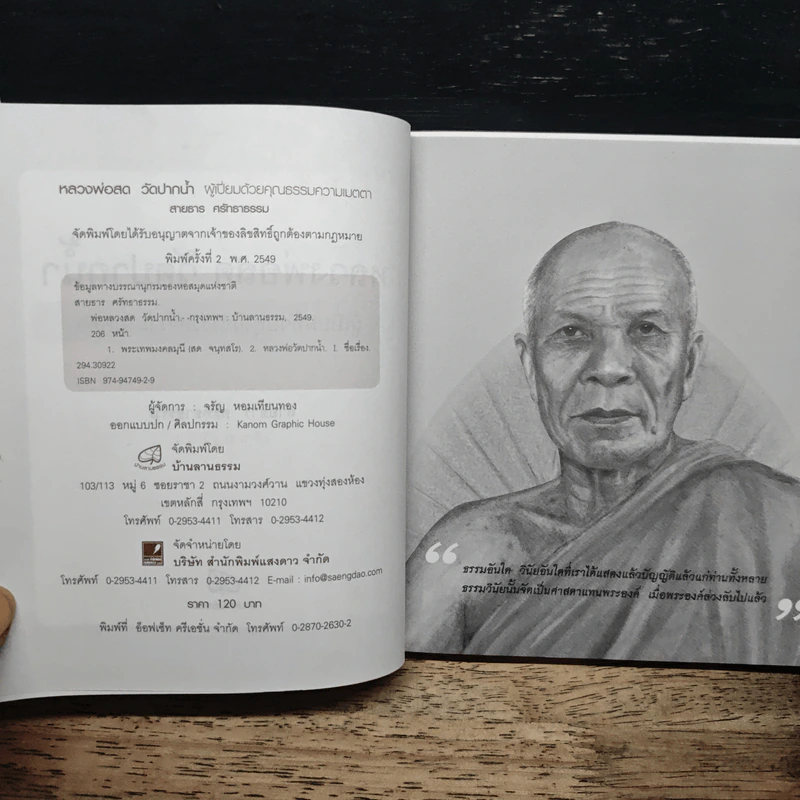 หลวงพ่อสด วัดปากน้ำ ผู้เปี่ยมด้วยคุณธรรมความเมตตา
สายธาร ศรัทธาธรรม
จัดพิมพ์โดยได้รับอนุญาตจากเจ้าของลิขสิทธิ์ถูกต้องตามกฎหมาย
พิมพ์ครั้งที่ 2 พ.ศ. 2549
ข้อมูลทางบรรณานุกรมของหอสมุดแห่งชาติ
สายธาร ศรัทธาธรรม.
พ่อหลวงสด วัดปากน้ำ.--กรุงเทพฯ : บ้านลานธรรม, 2549.
206 หน้า.
1. พระเทพมงคลมุนี (สด จนฺทสโร). 2. หลวงพ่อวัดปากน้ำ. I. ชื่อเรื่อง.
294.30922
ISBN 974-94749-2-9
ผู้จัดการ : จรัญ หอมเทียนทอง
ออกแบบปก / ศิลปกรรม : Kanorn Graphic House
จัดพิมพ์โดย
บ้านลานธรรม
103/113 หมู่ 6 ซอยราชา 2 ถนนงามวงศ์วาน แขวงทุ่งสองห้อง
เขตหลักสี่ กรุงเทพฯ 10210
โทรศัพท์ 0-2953-4411 โทรสาร 0-2953-4412
จัดจำหน่ายโดย
บริษัท สำนักพิมพ์แสงดาว จำกัด
โทรศัพท์ 0-2953-4411 โทรสาร 0-2953-4412 E-mail : info@saengdao.com
ราคา 120 บาท
พิมพ์ที่ อ๊อฟเซ็ท ครีเอชั่น จำกัด โทรศัพท์ 0-2870-2630-2
“ ธรรมอันใด วินัยอันใดที่เราได้แสดงแล้วบัญญัติแล้วแก่ท่านทั้งหลาย
ธรรมวินัยนั้นจัดเป็นศาสดาแทนพระองค์ เมื่อพระองค์ล่วงลับไปแล้ว ”